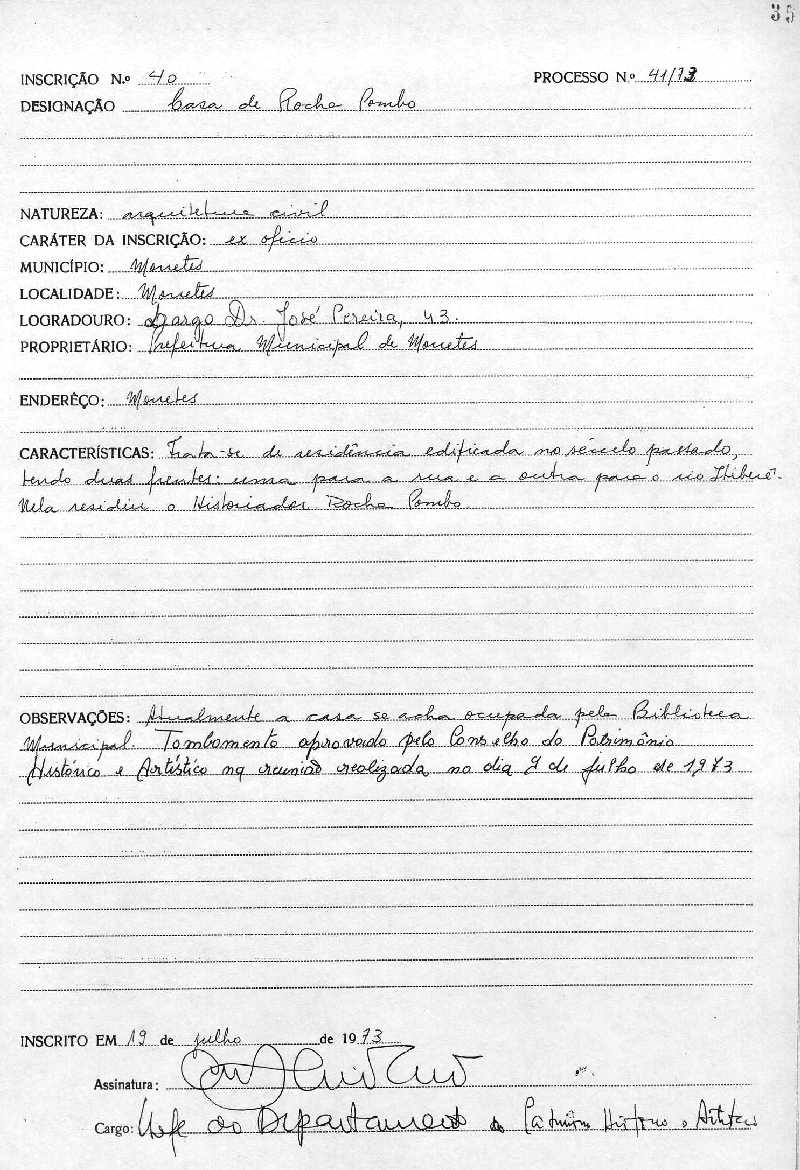 35
INSCRIÇÃO N.º 40 PROCESSO N.º 41/73
DESIGNAÇÃO Casa de Rocha Pombo
NATUREZA: arquitetura civil
CARÁTER DA INSCRIÇÃO: ex oficio
MUNICÍPIO: Morretes
LOCALIDADE: Morretes
LOGRADOURO: Largo Dr. José Pereira, 43.
PROPRIETÁRIO: Prefeitura Municipal de Morretes
ENDERÊÇO: Morretes
CARACTERÍSTICAS: Trata-se de residência edificada no século passado,
tendo duas frentes: uma para a rua e a outra para o rio Itiberê.
Nela residiu o Historiador Rocha Pombo.
OBSERVAÇÕES: Atualmente a casa se acha ocupada pela Biblioteca
Municipal. Tombamento aprovado pelo Conselho do Patrimônio
Histórico e Artístico na reunião realizada no dia 9 de julho de 1973
INSCRITO EM 19 de julho de 1973
Assinatura:
Cargo: Chefe do Departamento do Patrimônio Histórico e Artístico